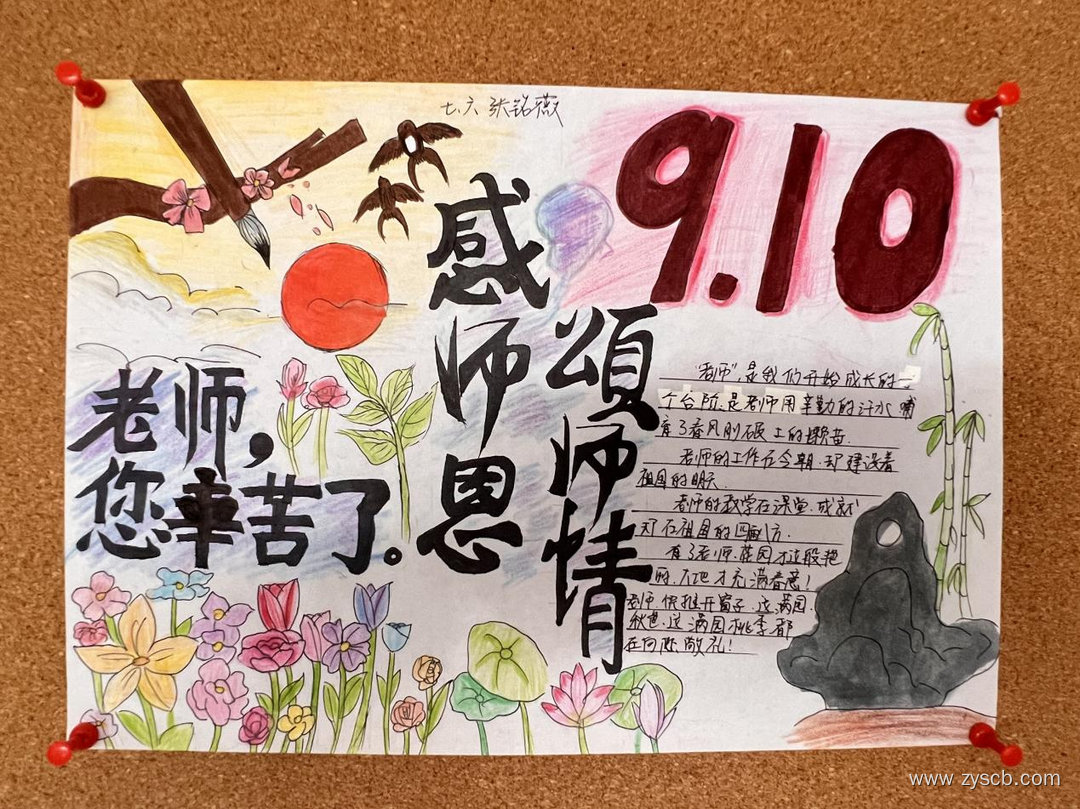 七.六 张铭薇
9.10
感师恩
頌师情
老师,
您辛苦了。
"老师"是我们开始成长的一
个台阶.是老师用辛勤的汗水 哺
育了春风刚破土的嫩苗.
老师的工作在今朝.却建设着
祖国的明天.
老师的教学在课堂.成就
却在祖国的四面八方.
有了老师.花园才这般艳
丽.大地才充满春意!
老师 快推开窗子.这满园
秋色.这满园桃李都
在向您敬礼!
www.zyscb.com